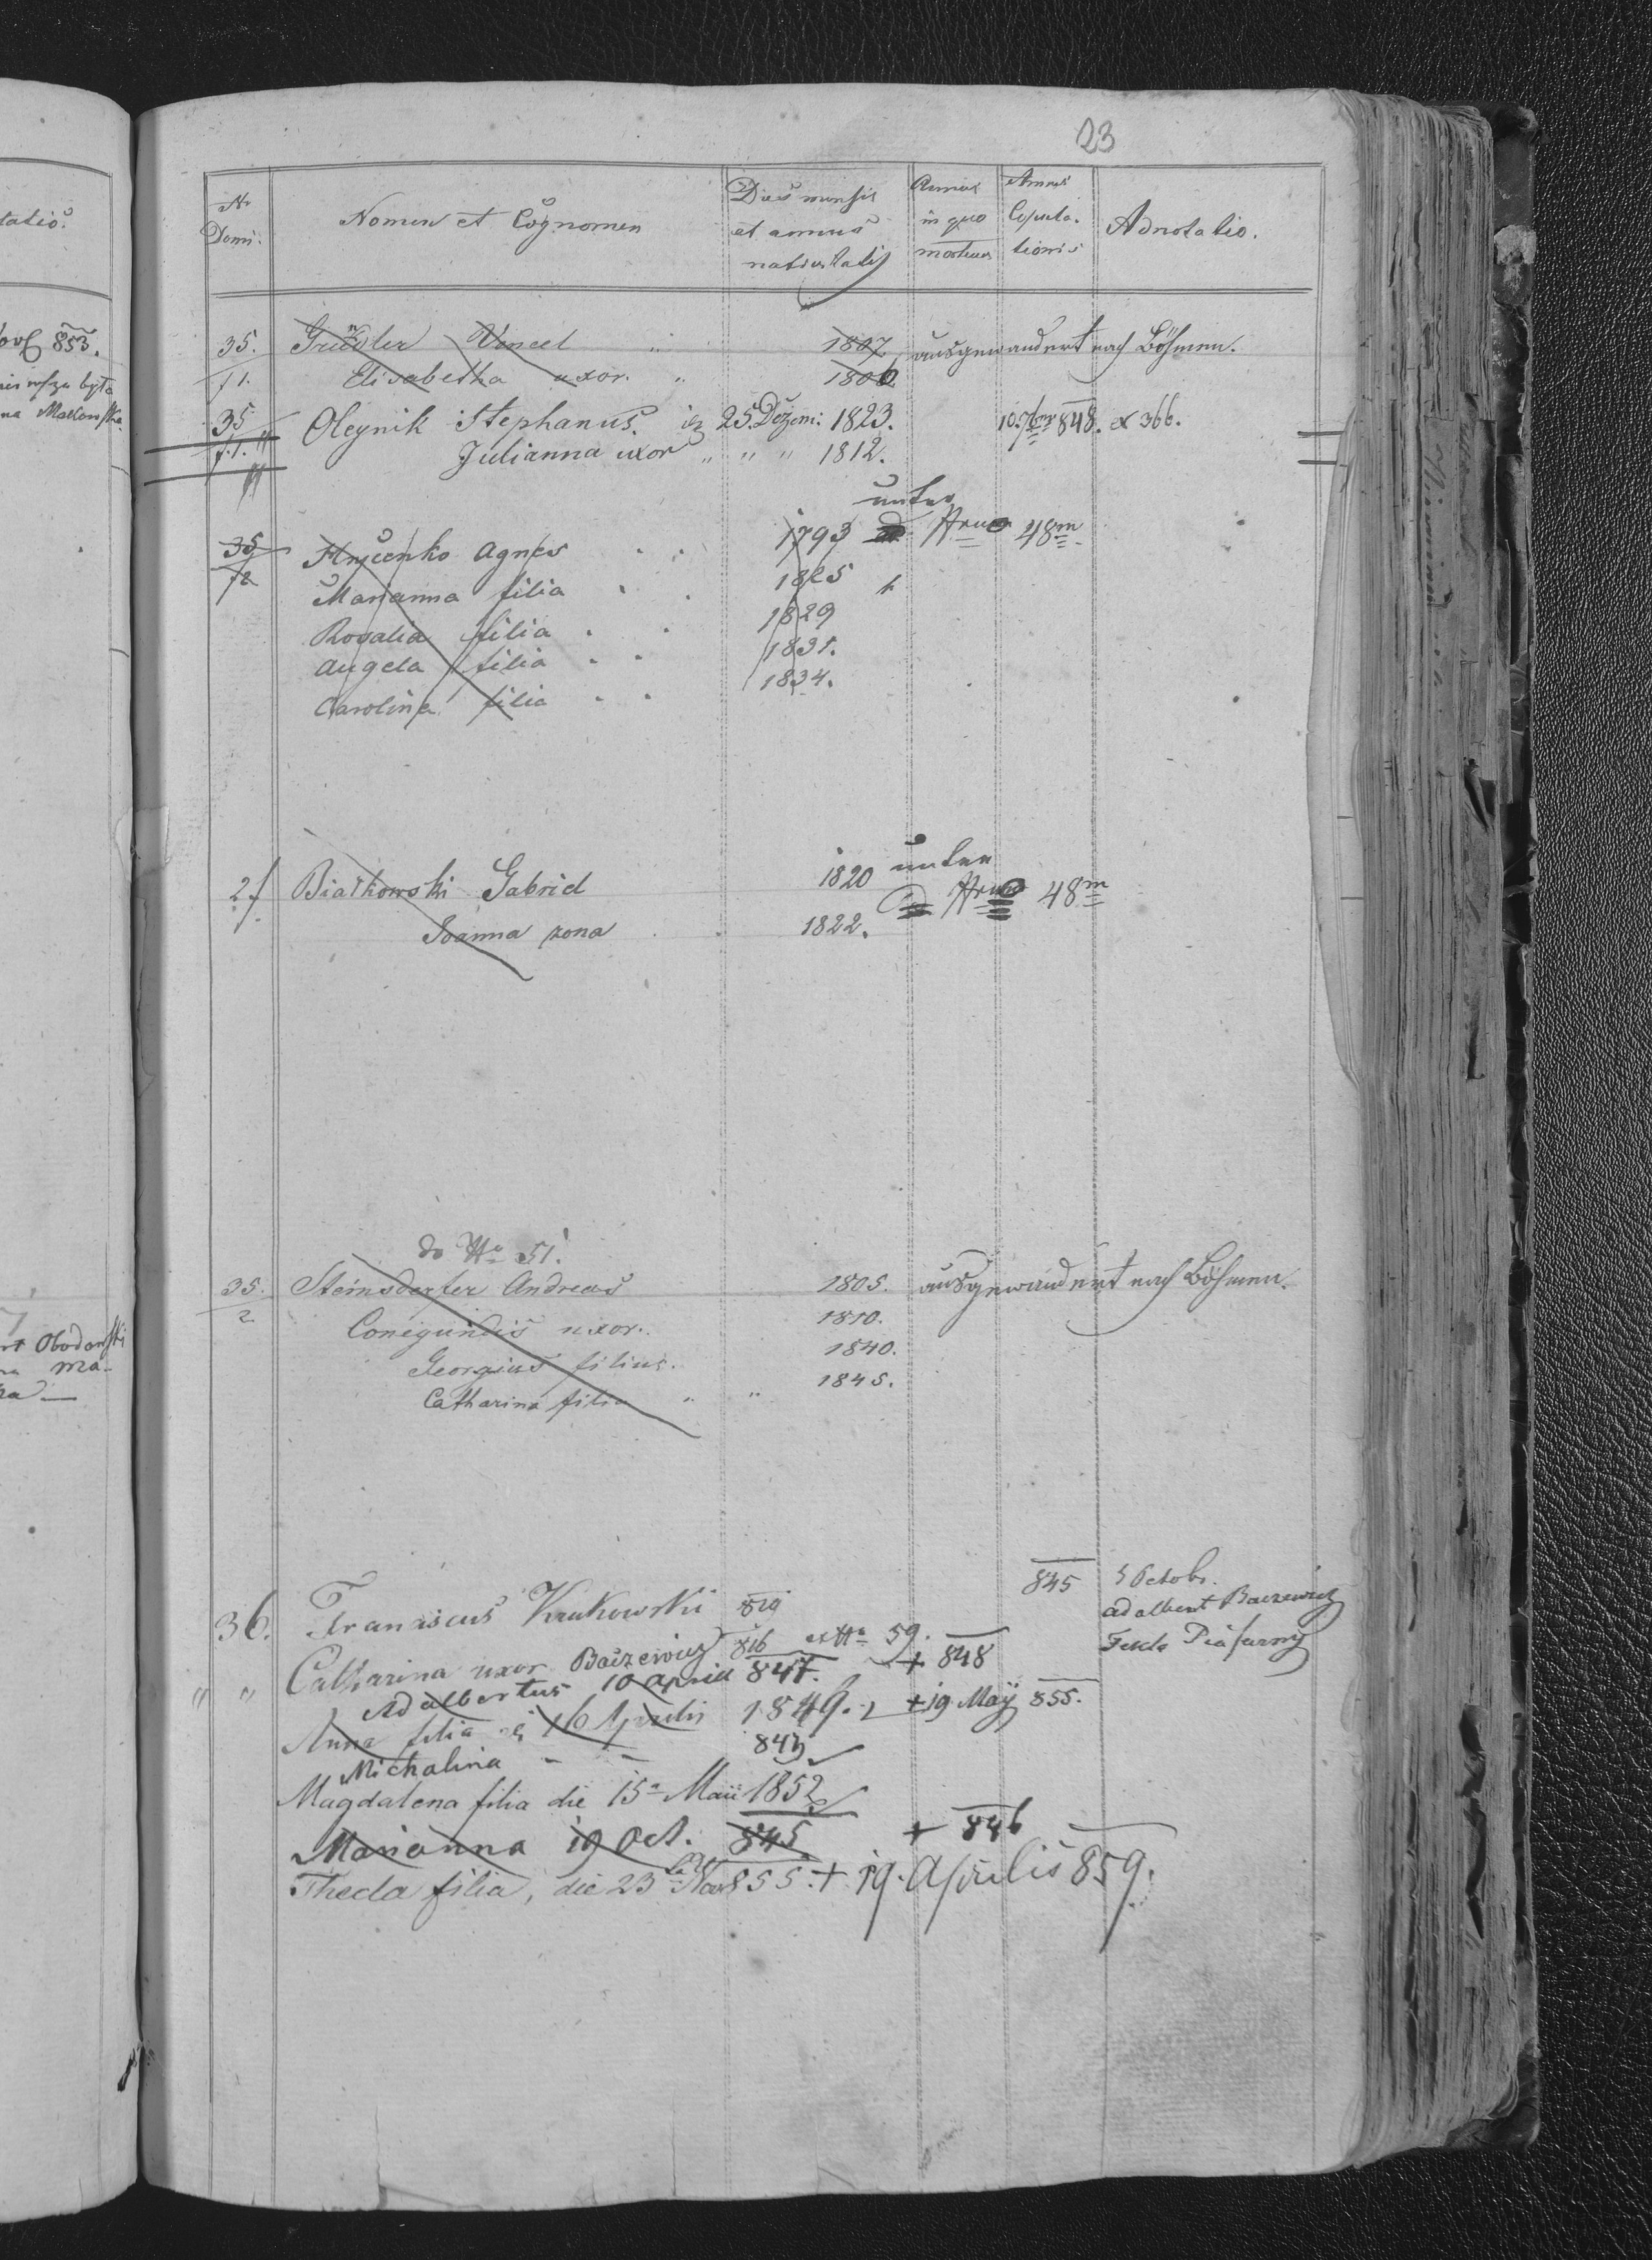 23
Nr Domi: Nomen et Cognomen Dies mensis et annus nativitatis Annus in quo mortuus Annus Copula- tionis Adnotatio.
35. Vencel 1807 ausgewandert nach Böhmen.
f1. Elisabetha uxor. " 1806
35 Oleynik Stephanus. 25. 1823. 10. 7br 848. ex 366.
f.1. Julianna uxor " " " 1812.
unter
35 Agnes 1793 48m
f2 Marianna filia 1825
Rosalia filia 1829
Angela filia 1831.
Carolina filia 1834.
unter
2f Białkowski Gabriel 1820 48m
Joanna zona 1822.
do No 51.
35. Steinsderfer Andreas 1805. ausgewandert nach Böhmen.
2 Conegundis uxor. 1810.
Georgius filius. 1840.
Catharina filia " " 1845.
845 5 Octobr.
36. Franciscus Krukowski 819 adalbert Baczewicz
Catharina uxor Baczewicz 816 ex No 59. Piasarny
" " Adalbertus 10 april 847. + 848
Anna filia 16 Aprilis 1849. + 19 Maij 855.
Michalina - - 843
Magdalena filia die 15a Maii 1852
Marianna 19 Oct. 845 + 846
Thecla filia, die 23 855. + 19. Aprilis 859.
853.
Obodowski
ma-